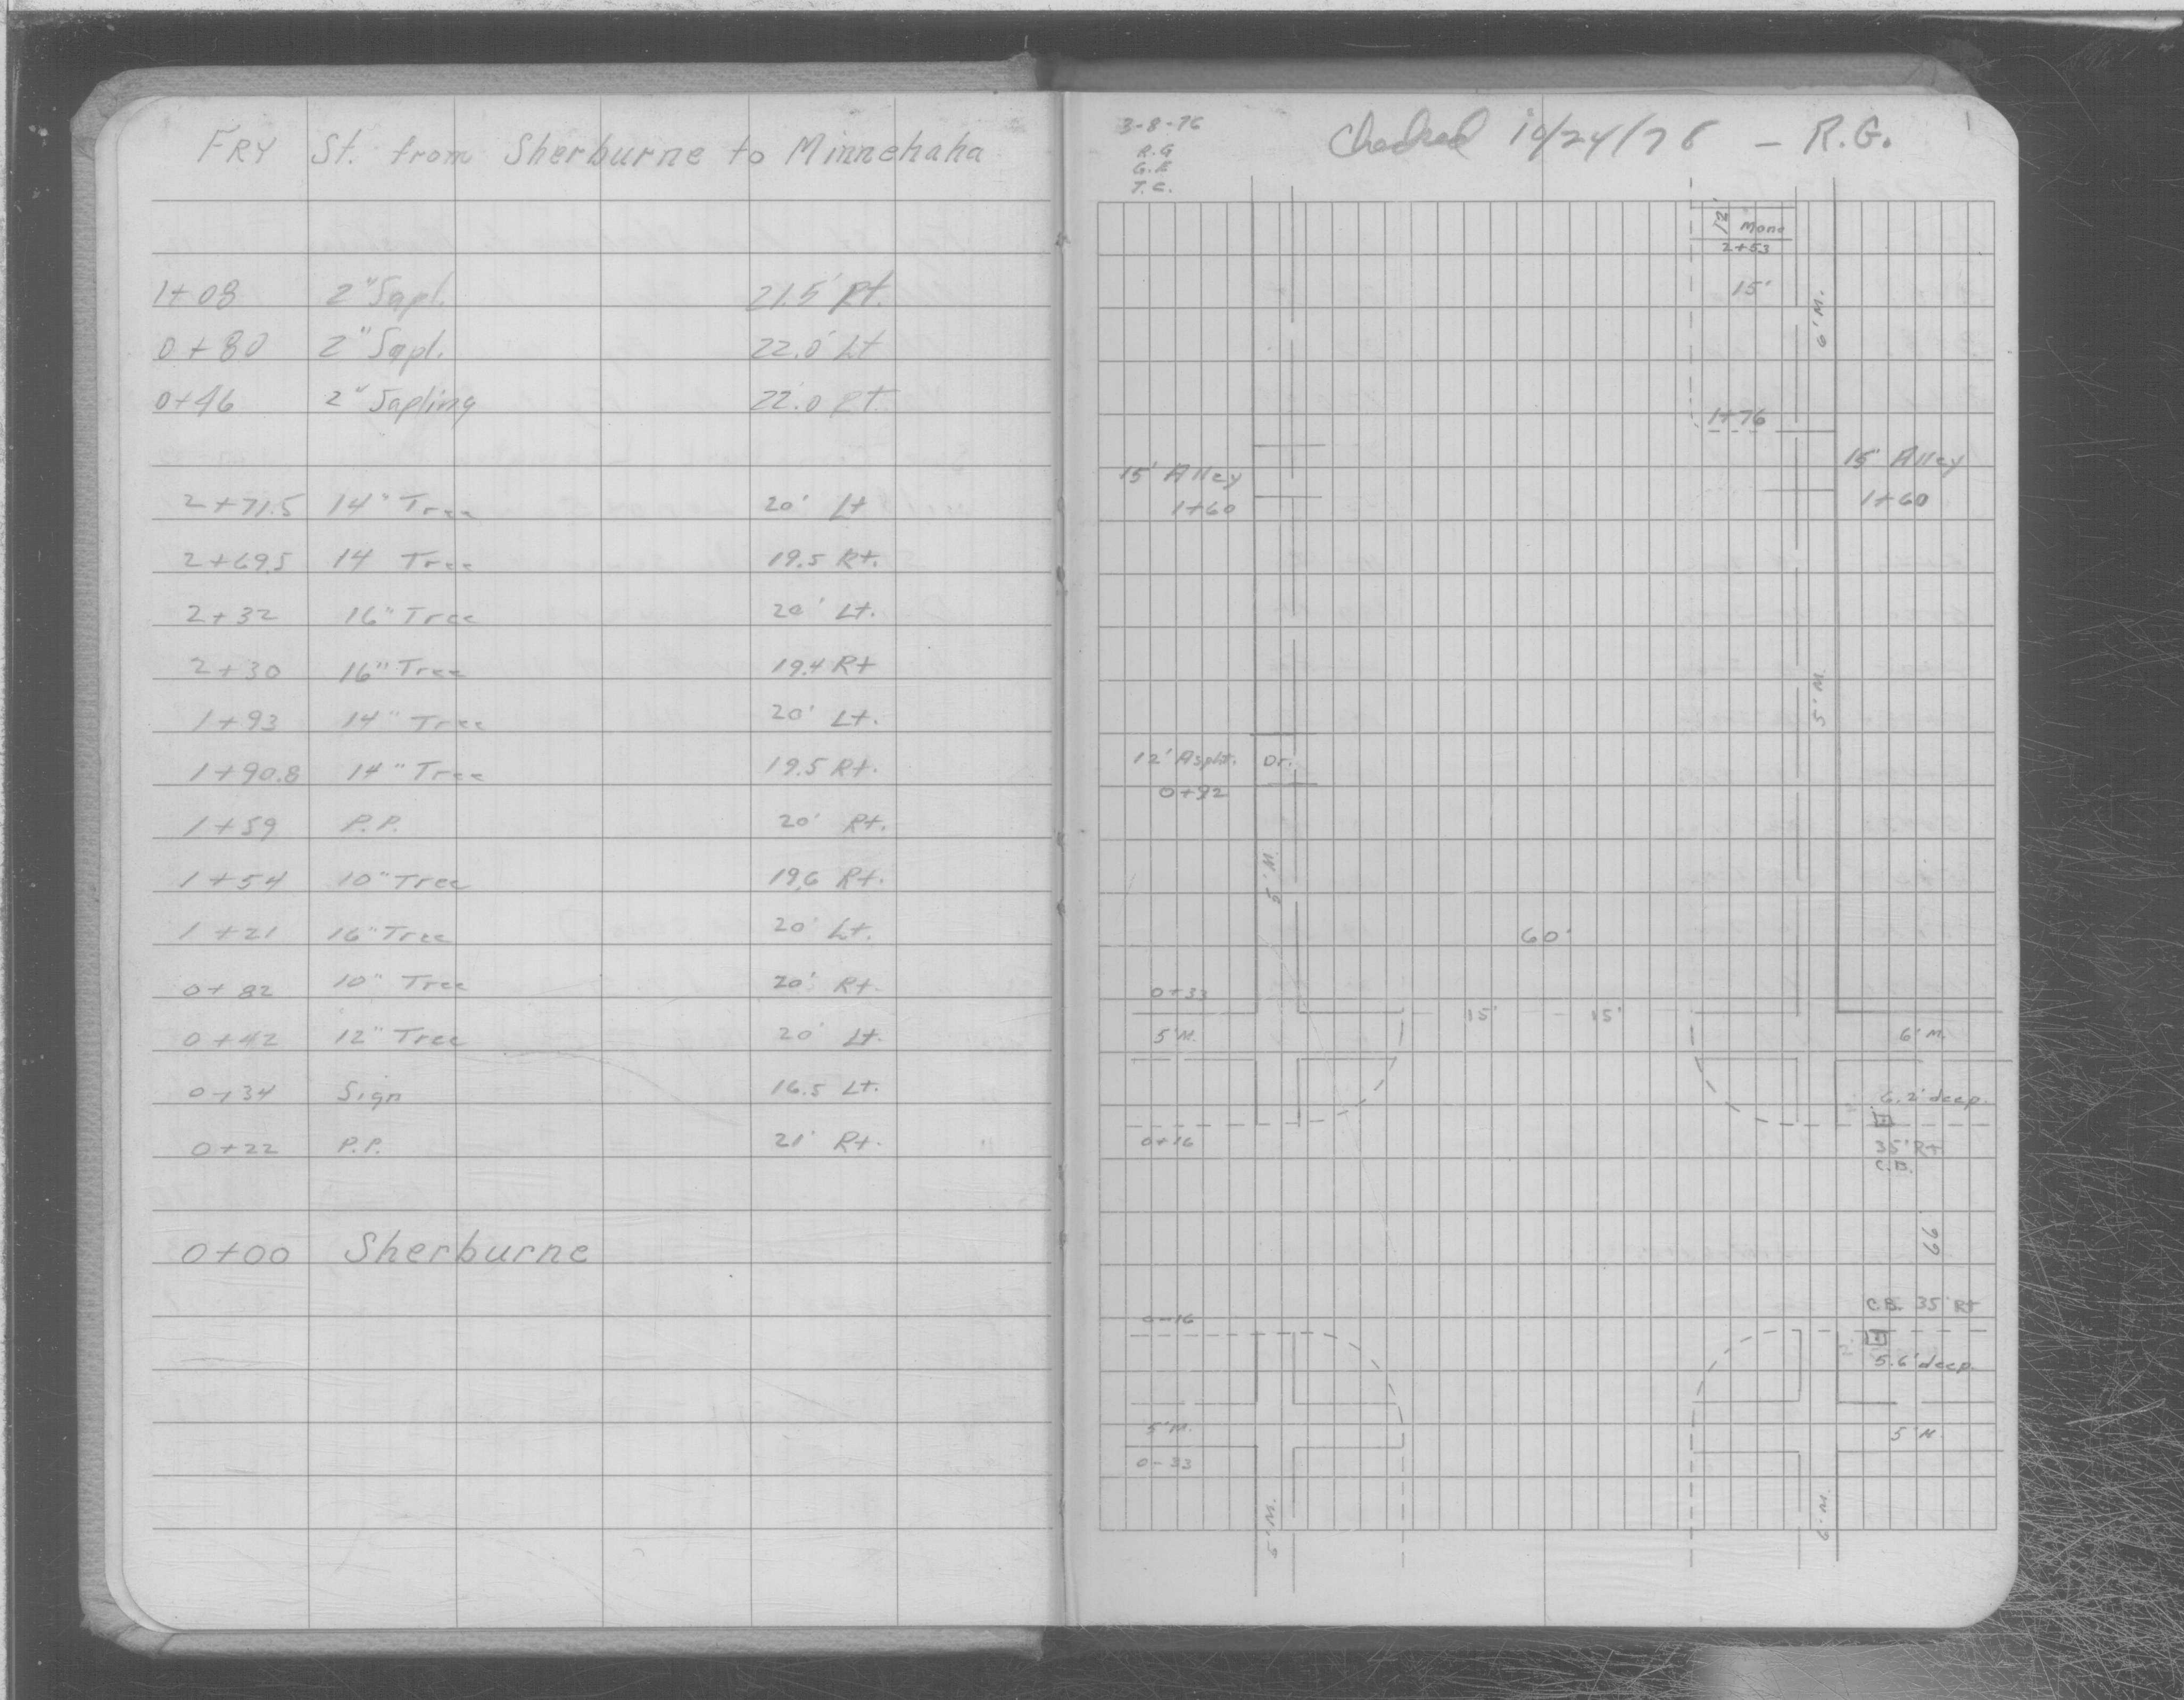 FRY St. from Sherburne to Minnehaha
1+08 2" Sapl. 21.5' Rt.
0+80 2" Sapl. 22.0' Lt
0+46 2" Sapling 22.0 Rt.
2+71.5 14" Tree 20' Lt
2+69.5 14 Tree 19.5 Rt.
2+32 16" Tree 20' Lt.
2+30 16" Tree 19.4 Rt
1+93 14" Tree 20' Lt.
1+90.8 14" Tree 19.5 Rt.
1+59 P.P. 20' Rt.
1+54 10" Tree 19.6 Rt.
1+21 16" Tree 20' Lt.
0+82 10" Tree 20' Rt.
0+42 12" Tree 20' Lt.
0+34 Sign 16.5 Lt.
0+22 P.P. 21' Rt.
0+00 Sherburne
3-8-76
R.G
G.E
T.C.
Checked 10/24/78 - R.G.
1
12' Mono
2+53
15'
6' M.
1+76
15' Alley
1+60
15' Alley
1+60
5' M.
12' Asphlt. Dr.
0+92
5' M.
60'
0+33
15' 15'
5' M.
6' M.
6.2' deep.
0+16
35' Rt
C.B.
66'
C.B. 35' Rt
0-16
2'
5.6' deep.
5' M.
5' M.
0-33
5' M.
6' M.